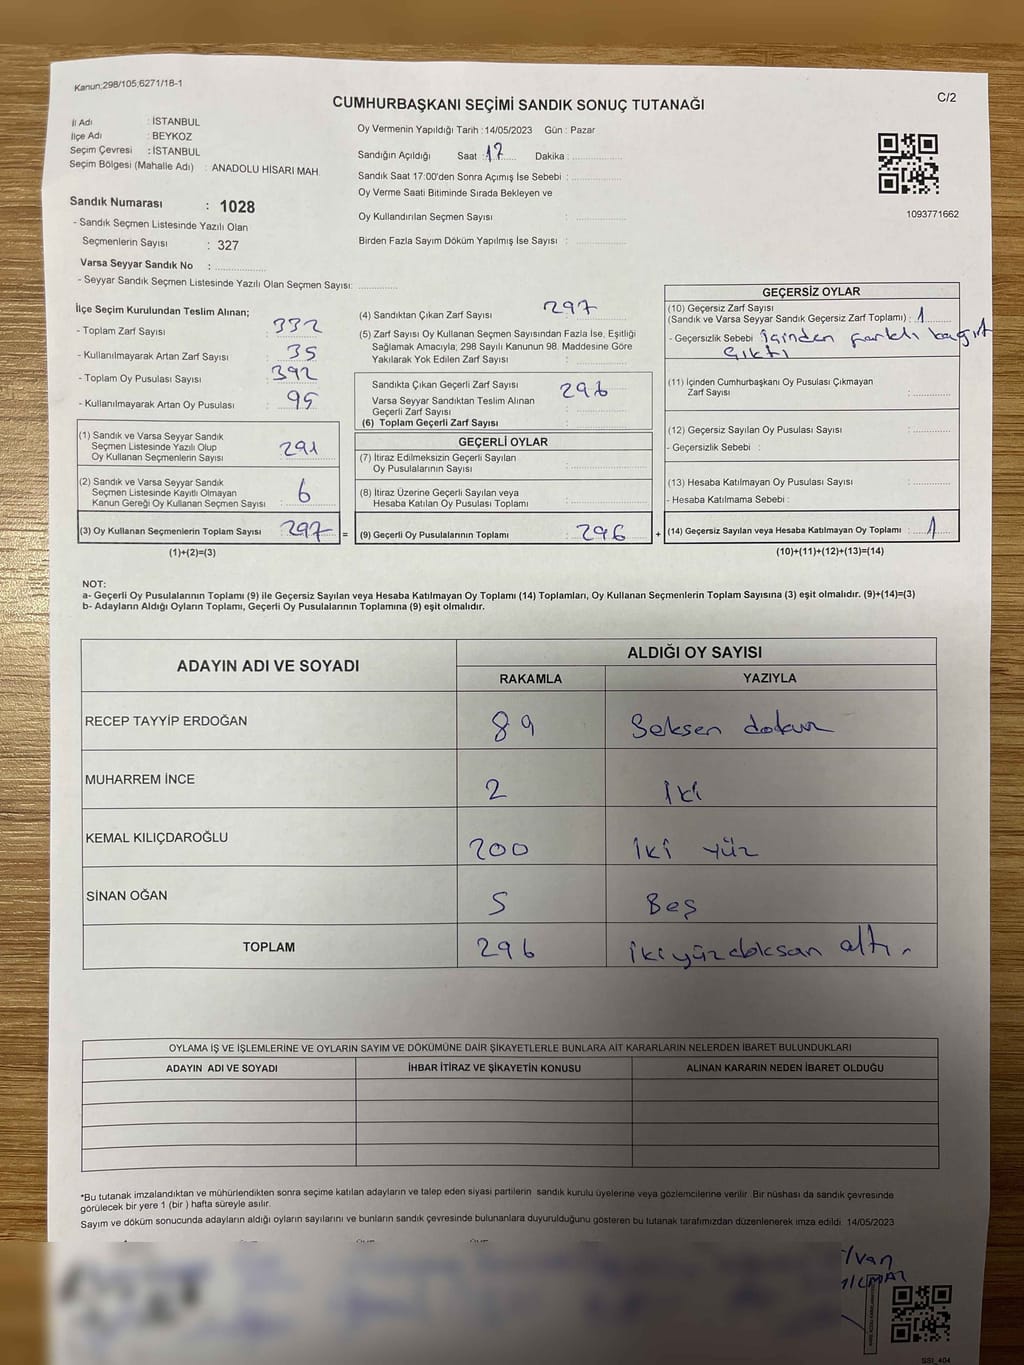 Kanun;298/105;6271/18-1
CUMHURBAŞKANI SEÇİMİ SANDIK SONUÇ TUTANAĞI
C/2
İl Adı : İSTANBUL
İlçe Adı : BEYKOZ
Seçim Çevresi : İSTANBUL
Seçim Bölgesi (Mahalle Adı) : ANADOLU HİSARI MAH.
Sandık Numarası : 1028
- Sandık Seçmen Listesinde Yazılı Olan
Seçmenlerin Sayısı : 327
Varsa Seyyar Sandık No :
- Seyyar Sandık Seçmen Listesinde Yazılı Olan Seçmen Sayısı:
Oy Vermenin Yapıldığı Tarih : 14/05/2023 Gün : Pazar
Sandığın Açıldığı Saat : 17 Dakika :
Sandık Saat 17:00'den Sonra Açımış İse Sebebi :
Oy Verme Saati Bitiminde Sırada Bekleyen ve
Oy Kullandırılan Seçmen Sayısı :
Birden Fazla Sayım Döküm Yapılmış İse Sayısı :
1093771662
İlçe Seçim Kurulundan Teslim Alınan;
- Toplam Zarf Sayısı : 332
- Kullanılmayarak Artan Zarf Sayısı : 35
- Toplam Oy Pusulası Sayısı : 392
- Kullanılmayarak Artan Oy Pusulası : 95
(1) Sandık ve Varsa Seyyar Sandık
Seçmen Listesinde Yazılı Olup
Oy Kullanan Seçmenlerin Sayısı : 291
(2) Sandık ve Varsa Seyyar Sandık
Seçmen Listesinde Kayıtlı Olmayan
Kanun Gereği Oy Kullanan Seçmen Sayısı : 6
(3) Oy Kullanan Seçmenlerin Toplam Sayısı : 297 =
(1)+(2)=(3)
(4) Sandıktan Çıkan Zarf Sayısı : 297
(5) Zarf Sayısı Oy Kullanan Seçmen Sayısından Fazla İse, Eşitliği
Sağlamak Amacıyla; 298 Sayılı Kanunun 98. Maddesine Göre
Yakılarak Yok Edilen Zarf Sayısı :
Sandıkta Çıkan Geçerli Zarf Sayısı : 296
Varsa Seyyar Sandıktan Teslim Alınan
Geçerli Zarf Sayısı :
(6) Toplam Geçerli Zarf Sayısı :
GEÇERLİ OYLAR
(7) İtiraz Edilmeksizin Geçerli Sayılan
Oy Pusulalarının Sayısı :
(8) İtiraz Üzerine Geçerli Sayılan veya
Hesaba Katılan Oy Pusulası Toplamı :
(9) Geçerli Oy Pusulalarının Toplamı : 296 +
GEÇERSİZ OYLAR
(10) Geçersiz Zarf Sayısı
(Sandık ve Varsa Seyyar Sandık Geçersiz Zarf Toplamı) : 1
- Geçersizlik Sebebi : İçinden farklı kağıt
çıktı
(11) İçinden Cumhurbaşkanı Oy Pusulası Çıkmayan
Zarf Sayısı :
(12) Geçersiz Sayılan Oy Pusulası Sayısı :
- Geçersizlik Sebebi :
(13) Hesaba Katılmayan Oy Pusulası Sayısı :
- Hesaba Katılmama Sebebi :
(14) Geçersiz Sayılan veya Hesaba Katılmayan Oy Toplamı : 1
(10)+(11)+(12)+(13)=(14)
NOT:
a- Geçerli Oy Pusulalarının Toplamı (9) ile Geçersiz Sayılan veya Hesaba Katılmayan Oy Toplamı (14) Toplamları, Oy Kullanan Seçmenlerin Toplam Sayısına (3) eşit olmalıdır. (9)+(14)=(3)
b- Adayların Aldığı Oyların Toplamı, Geçerli Oy Pusulalarının Toplamına (9) eşit olmalıdır.
ADAYIN ADI VE SOYADI ALDIĞI OY SAYISI
RAKAMLA YAZIYLA
RECEP TAYYİP ERDOĞAN 89 Seksen dokuz
MUHARREM İNCE 2 İki
KEMAL KILIÇDAROĞLU 200 İki yüz
SİNAN OĞAN 5 Beş
TOPLAM 296 İkiyüzdoksan altı
OYLAMA İŞ VE İŞLEMLERİNE VE OYLARIN SAYIM VE DÖKÜMÜNE DAİR ŞİKAYETLERLE BUNLARA AİT KARARLARIN NELERDEN İBARET BULUNDUKLARI
ADAYIN ADI VE SOYADI İHBAR İTİRAZ VE ŞİKAYETİN KONUSU ALINAN KARARIN NEDEN İBARET OLDUĞU
*Bu tutanak imzalandıktan ve mühürlendikten sonra seçime katılan adayların ve talep eden siyasi partilerin sandık kurulu üyelerine veya gözlemcilerine verilir. Bir nüshası da sandık çevresinde
görülecek bir yere 1 (bir ) hafta süreyle asılır.
Sayım ve döküm sonucunda adayların aldığı oyların sayılarını ve bunların sandık çevresinde bulunanlara duyurulduğunu gösteren bu tutanak tarafımızdan düzenlenerek imza edildi. 14/05/2023
SSI_404